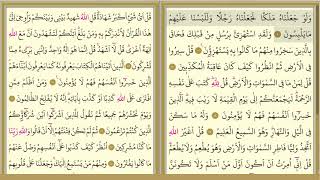 وَلَوْ جَعَلْنَاهُ مَلَكًا لَجَعَلْنَاهُ رَجُلًا وَلَلَبَسْنَا عَلَيْهِمْ
مَا يَلْبِسُونَ وَلَقَدِ اسْتُهْزِئَ بِرُسُلٍ مِنْ قَبْلِكَ فَحَاقَ
بِالَّذِينَ سَخِرُوا مِنْهُمْ مَا كَانُوا بِهِ يَسْتَهْزِؤُنَ قُلْ سِيرُوا
فِي الْأَرْضِ ثُمَّ انْظُرُوا كَيْفَ كَانَ عَاقِبَةُ الْمُكَذِّبِينَ
قُلْ لِمَنْ مَا فِي السَّمَاوَاتِ وَالْأَرْضِ قُلْ لِلَّهِ كَتَبَ عَلَى نَفْسِهِ
الرَّحْمَةَ لَيَجْمَعَنَّكُمْ إِلَى يَوْمِ الْقِيَامَةِ لَا رَيْبَ فِيهِ الَّذِينَ
خَسِرُوا أَنْفُسَهُمْ فَهُمْ لَا يُؤْمِنُونَ وَلَهُ مَا سَكَنَ
فِي اللَّيْلِ وَالنَّهَارِ وَهُوَ السَّمِيعُ الْعَلِيمُ قُلْ أَغَيْرَ اللَّهِ
أَتَّخِذُ وَلِيًّا فَاطِرِ السَّمَاوَاتِ وَالْأَرْضِ وَهُوَ يُطْعِمُ وَلَا يُطْعَمُ
قُلْ إِنِّي أُمِرْتُ أَنْ أَكُونَ أَوَّلَ مَنْ أَسْلَمَ وَلَا تَكُونَنَّ
قُلْ أَيُّ شَيْءٍ أَكْبَرُ شَهَادَةً قُلِ اللَّهُ شَهِيدٌ بَيْنِي وَبَيْنَكُمْ وَأُوحِيَ إِلَيَّ
هَذَا الْقُرْآنُ لِأُنْذِرَكُمْ بِهِ وَمَنْ بَلَغَ أَئِنَّكُمْ لَتَشْهَدُونَ أَنَّ مَعَ اللَّهِ
آلِهَةً أُخْرَى قُلْ لَا أَشْهَدُ قُلْ إِنَّمَا هُوَ إِلَهٌ وَاحِدٌ وَإِنَّنِي بَرِيءٌ مِمَّا تُشْرِكُونَ
الَّذِينَ آتَيْنَاهُمُ الْكِتَابَ يَعْرِفُونَهُ كَمَا يَعْرِفُونَ أَبْنَاءَهُمُ
الَّذِينَ خَسِرُوا أَنْفُسَهُمْ فَهُمْ لَا يُؤْمِنُونَ وَمَنْ أَظْلَمُ مِمَّنِ
افْتَرَى عَلَى اللَّهِ كَذِبًا أَوْ كَذَّبَ بِآيَاتِهِ إِنَّهُ لَا يُفْلِحُ الظَّالِمُونَ
وَيَوْمَ نَحْشُرُهُمْ جَمِيعًا ثُمَّ نَقُولُ لِلَّذِينَ أَشْرَكُوا أَيْنَ شُرَكَاؤُكُمُ
الَّذِينَ كُنْتُمْ تَزْعُمُونَ ثُمَّ لَمْ تَكُنْ فِتْنَتُهُمْ إِلَّا أَنْ قَالُوا وَاللَّهِ رَبِّنَا
مَا كُنَّا مُشْرِكِينَ انْظُرْ كَيْفَ كَذَبُوا عَلَى أَنْفُسِهِمْ وَضَلَّ عَنْهُمْ
مَا كَانُوا يَفْتَرُونَ وَمِنْهُمْ مَنْ يَسْتَمِعُ إِلَيْكَ وَجَعَلْنَا عَلَى قُلُوبِهِمْ